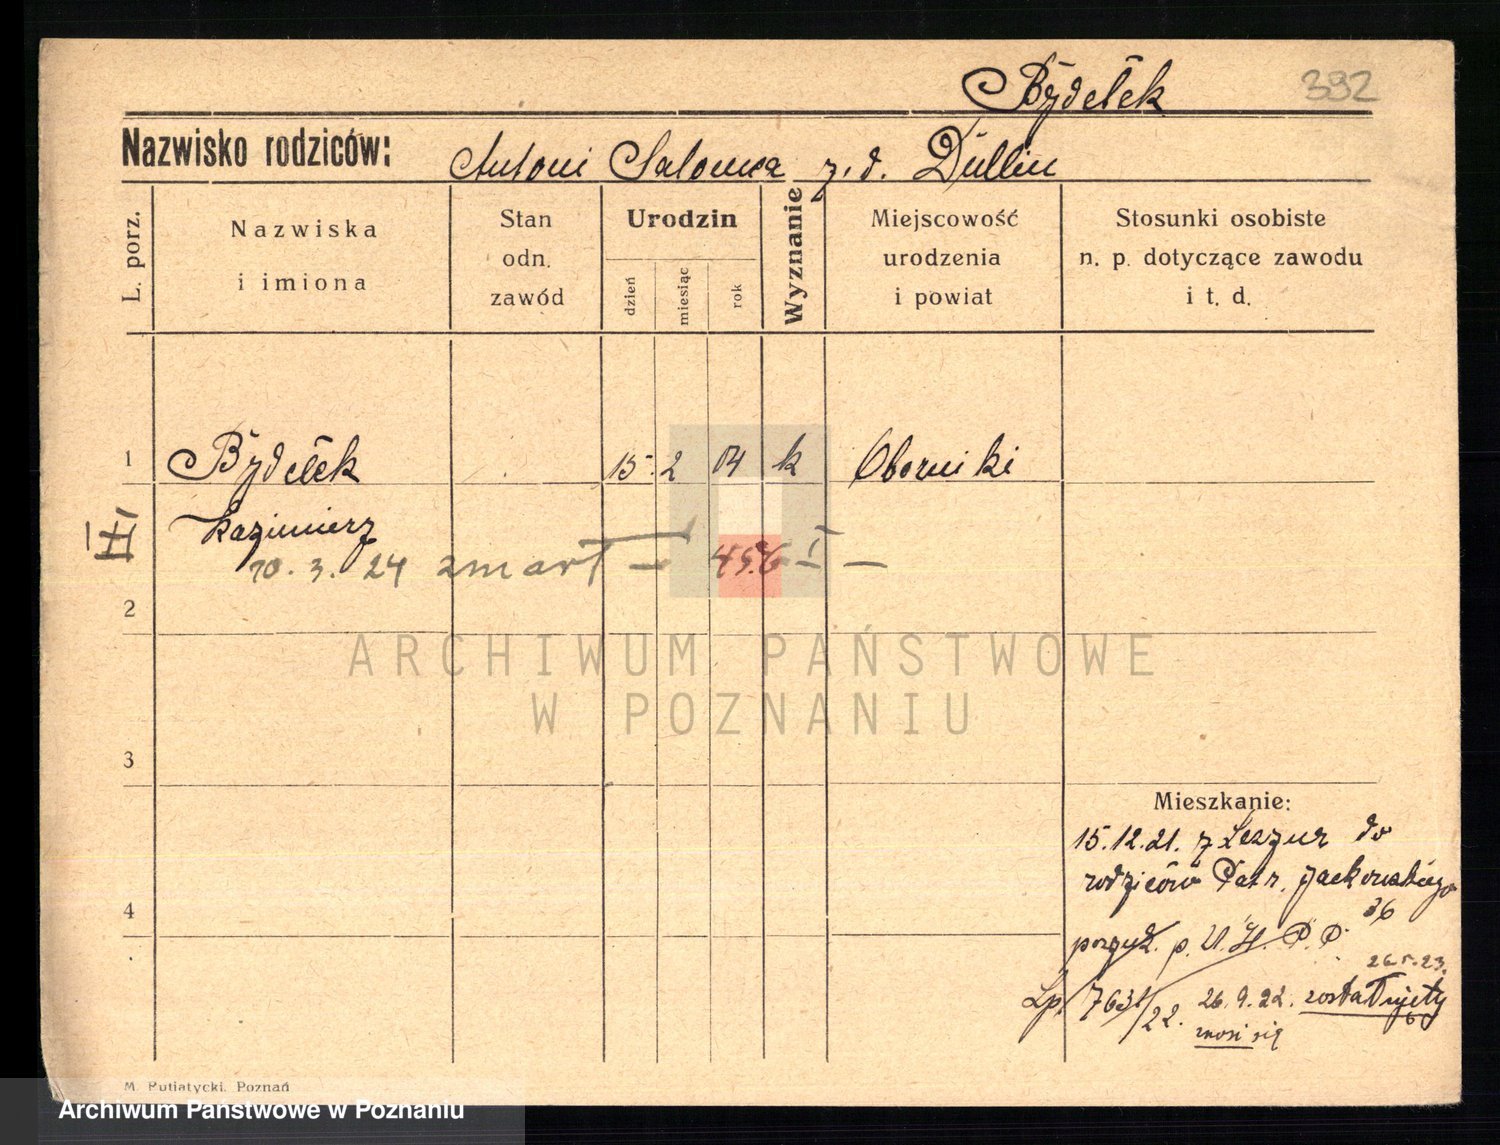 Bydełek 392
Nazwisko rodziców: Antoni Salomea z. d. Dullin
L. porz.
Nazwiska
i imiona
Stan
odn.
zawód
Urodzin
dzień
miesiąc
rok
Wyznanie
Miejscowość
urodzenia
i powiat
Stosunki osobiste
n. p. dotyczące zawodu
i t. d.
1 Bydełek 15. 2 04 k Oborniki
Kazimierz
II
10. 3. 24 zmarł — 45. I —
2
ARCHIWUM PAŃSTWOWE
W POZNANIU
3
Mieszkanie:
15.12.21. z do
rodziców Patr. Jackowskiego
36
4
p. U. P. P.
23.
Lp. 7631/22. 26.9.22. został ujęty
znosi się
M. Putiatycki, Poznań
Archiwum Państwowe w Poznaniu